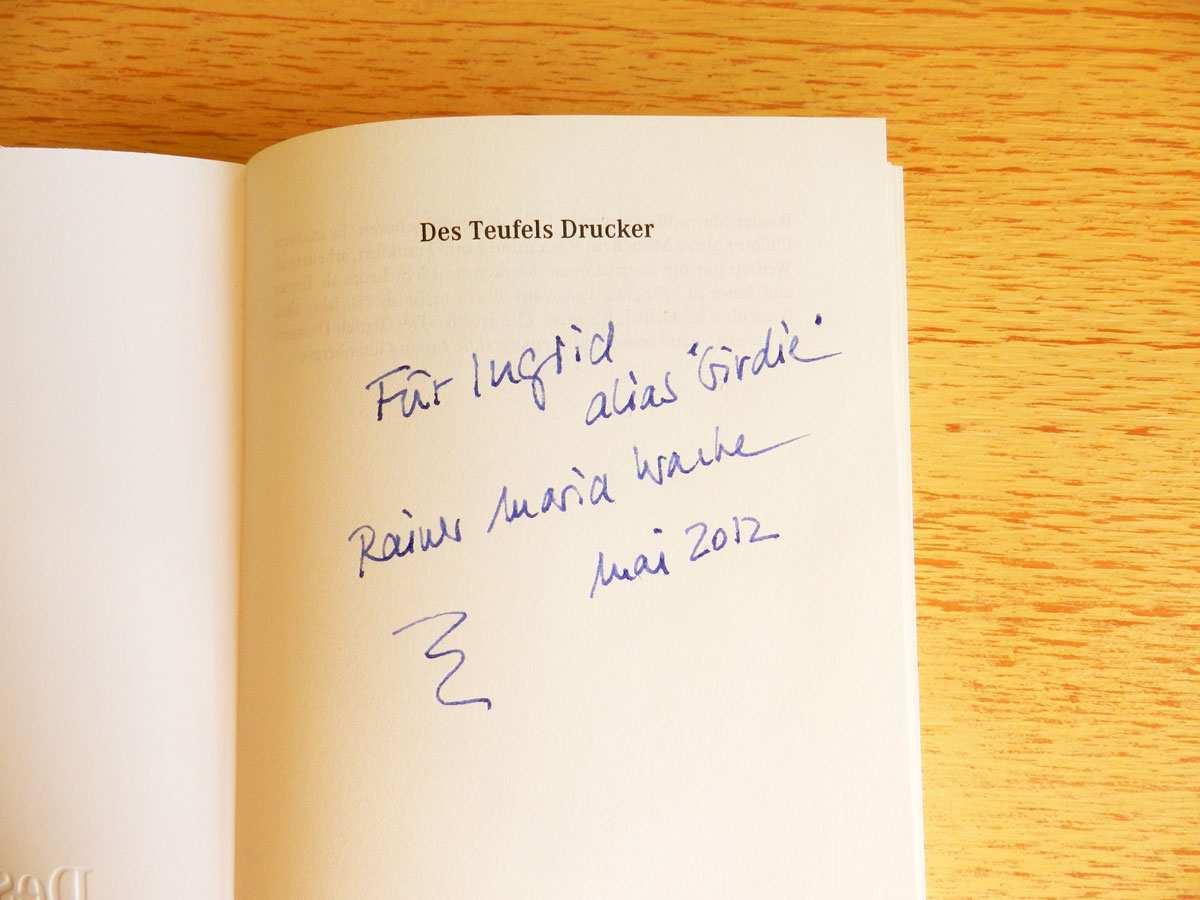 Des Teufels Drucker
Für Ingrid
alias "Girdie"
Rainer Maria Wache
Mai 2012
Des